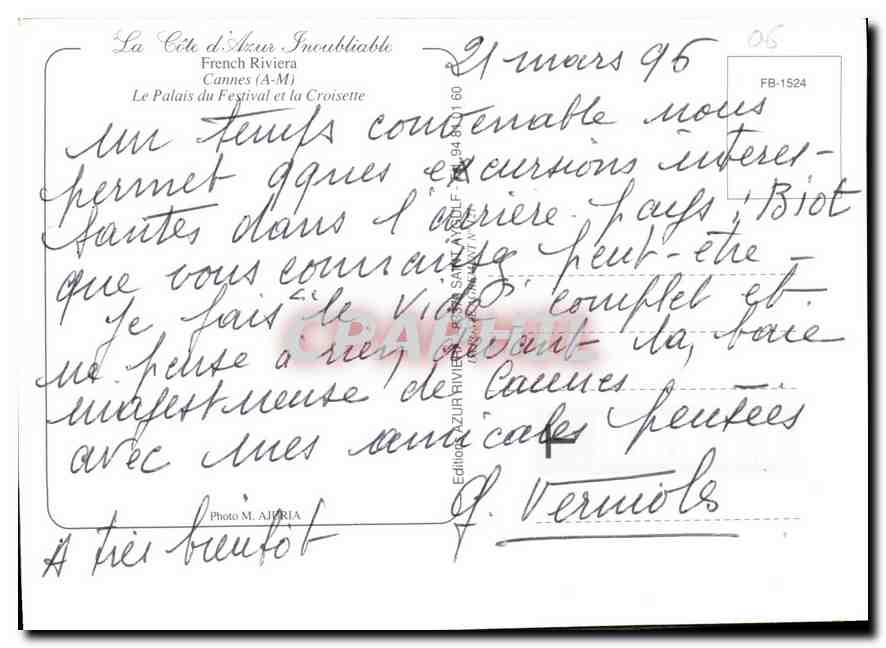 La Côte d'Azur Inoubliable
French Riviera
Cannes (A-M)
Le Palais du Festival et la Croisette
06
FB-1524
21 mars 95
un temps convenable nous
permet qques excursions intéres-
santes dans l'arrière-pays : Biot
que vous connaissez peut-être -
Je fais "le vide" complet et
ne pense à rien, devant la baie
majestueuse de Cannes
avec mes amicales pensées
Vermoles
A très bientôt
Photo M. AJURIA
Editions AZUR RIVIERA
SAINT AYGULF
CPARHTL